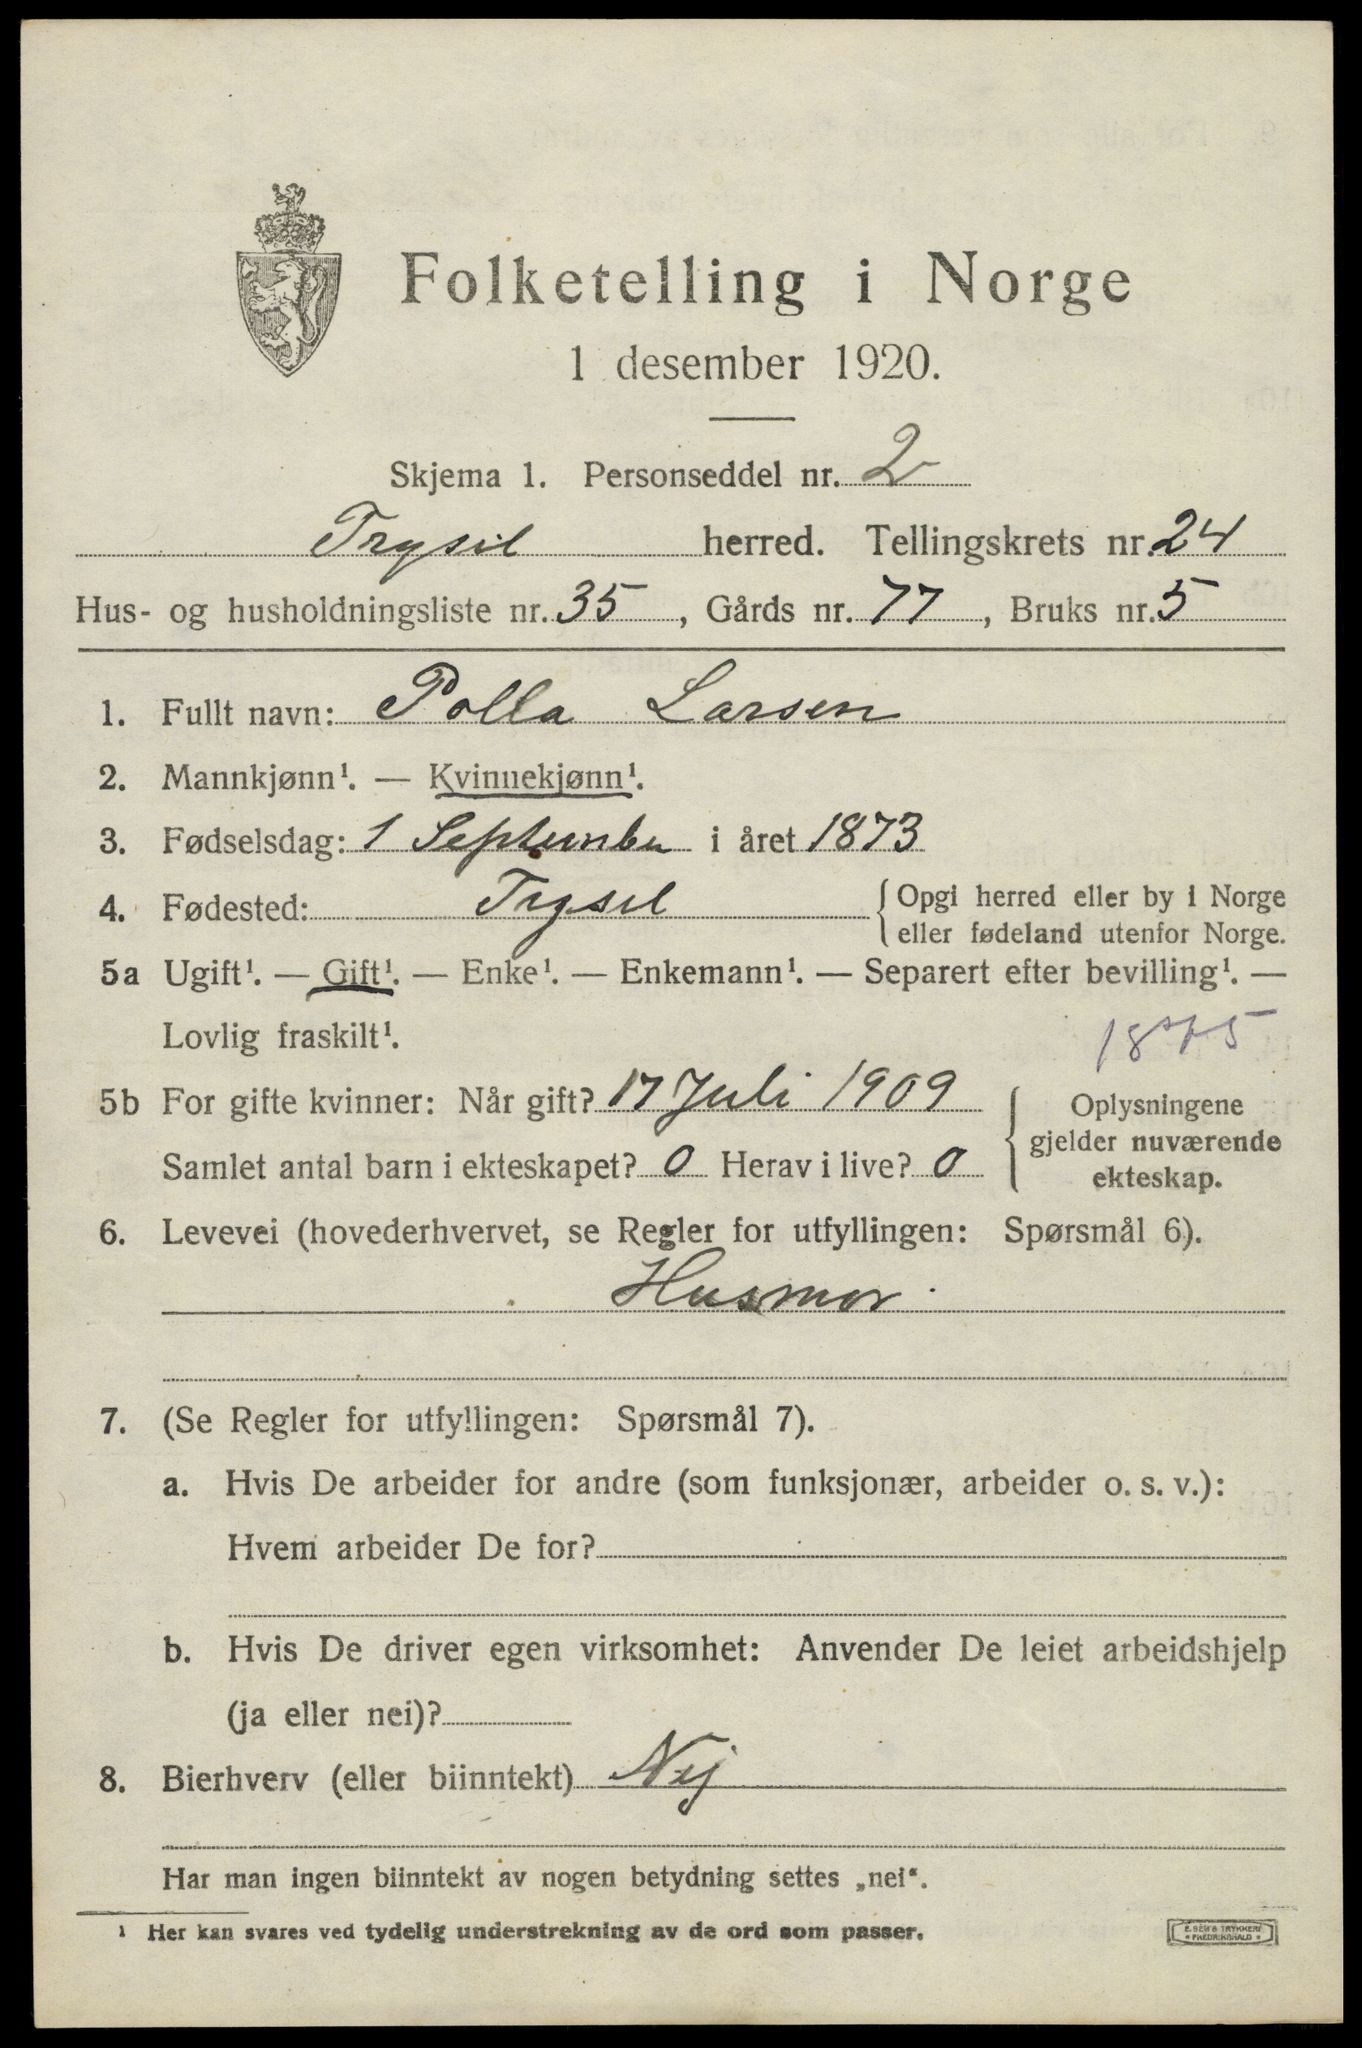 Folketelling i Norge
1 desember 1920.
Skjema 1. Personseddel nr. 2
Trysil herred. Tellingskrets nr. 24
Hus- og husholdningsliste nr. 35, Gårds nr. 77, Bruks nr. 5
1. Fullt navn: Polla Larsen
2. Mannkjønn¹. — Kvinnekjønn¹.
3. Fødselsdag: 1 September i året 1873
4. Fødested: Trysil { Opgi herred eller by i Norge
eller fødeland utenfor Norge.
5a Ugift¹. — Gift¹. — Enke¹. — Enkemann¹. — Separert efter bevilling¹. —
Lovlig fraskilt¹.
5b For gifte kvinner: Når gift? 17 Juli 1909
Samlet antal barn i ekteskapet? 0 Herav i live? 0
Oplysningene
gjelder nuværende
ekteskap.
6. Levevei (hovederhvervet, se Regler for utfyllingen: Spørsmål 6).
Husmor.
7. (Se Regler for utfyllingen: Spørsmål 7).
a. Hvis De arbeider for andre (som funksjonær, arbeider o. s. v.):
Hvem arbeider De for?
b. Hvis De driver egen virksomhet: Anvender De leiet arbeidshjelp
(ja eller nei)?
8. Bierhverv (eller biinntekt) Nej
Har man ingen biinntekt av nogen betydning settes „nei“.
¹ Her kan svares ved tydelig understrekning av de ord som passer.
E. SEM'S TRYKKERI
FREDRIKSHALD